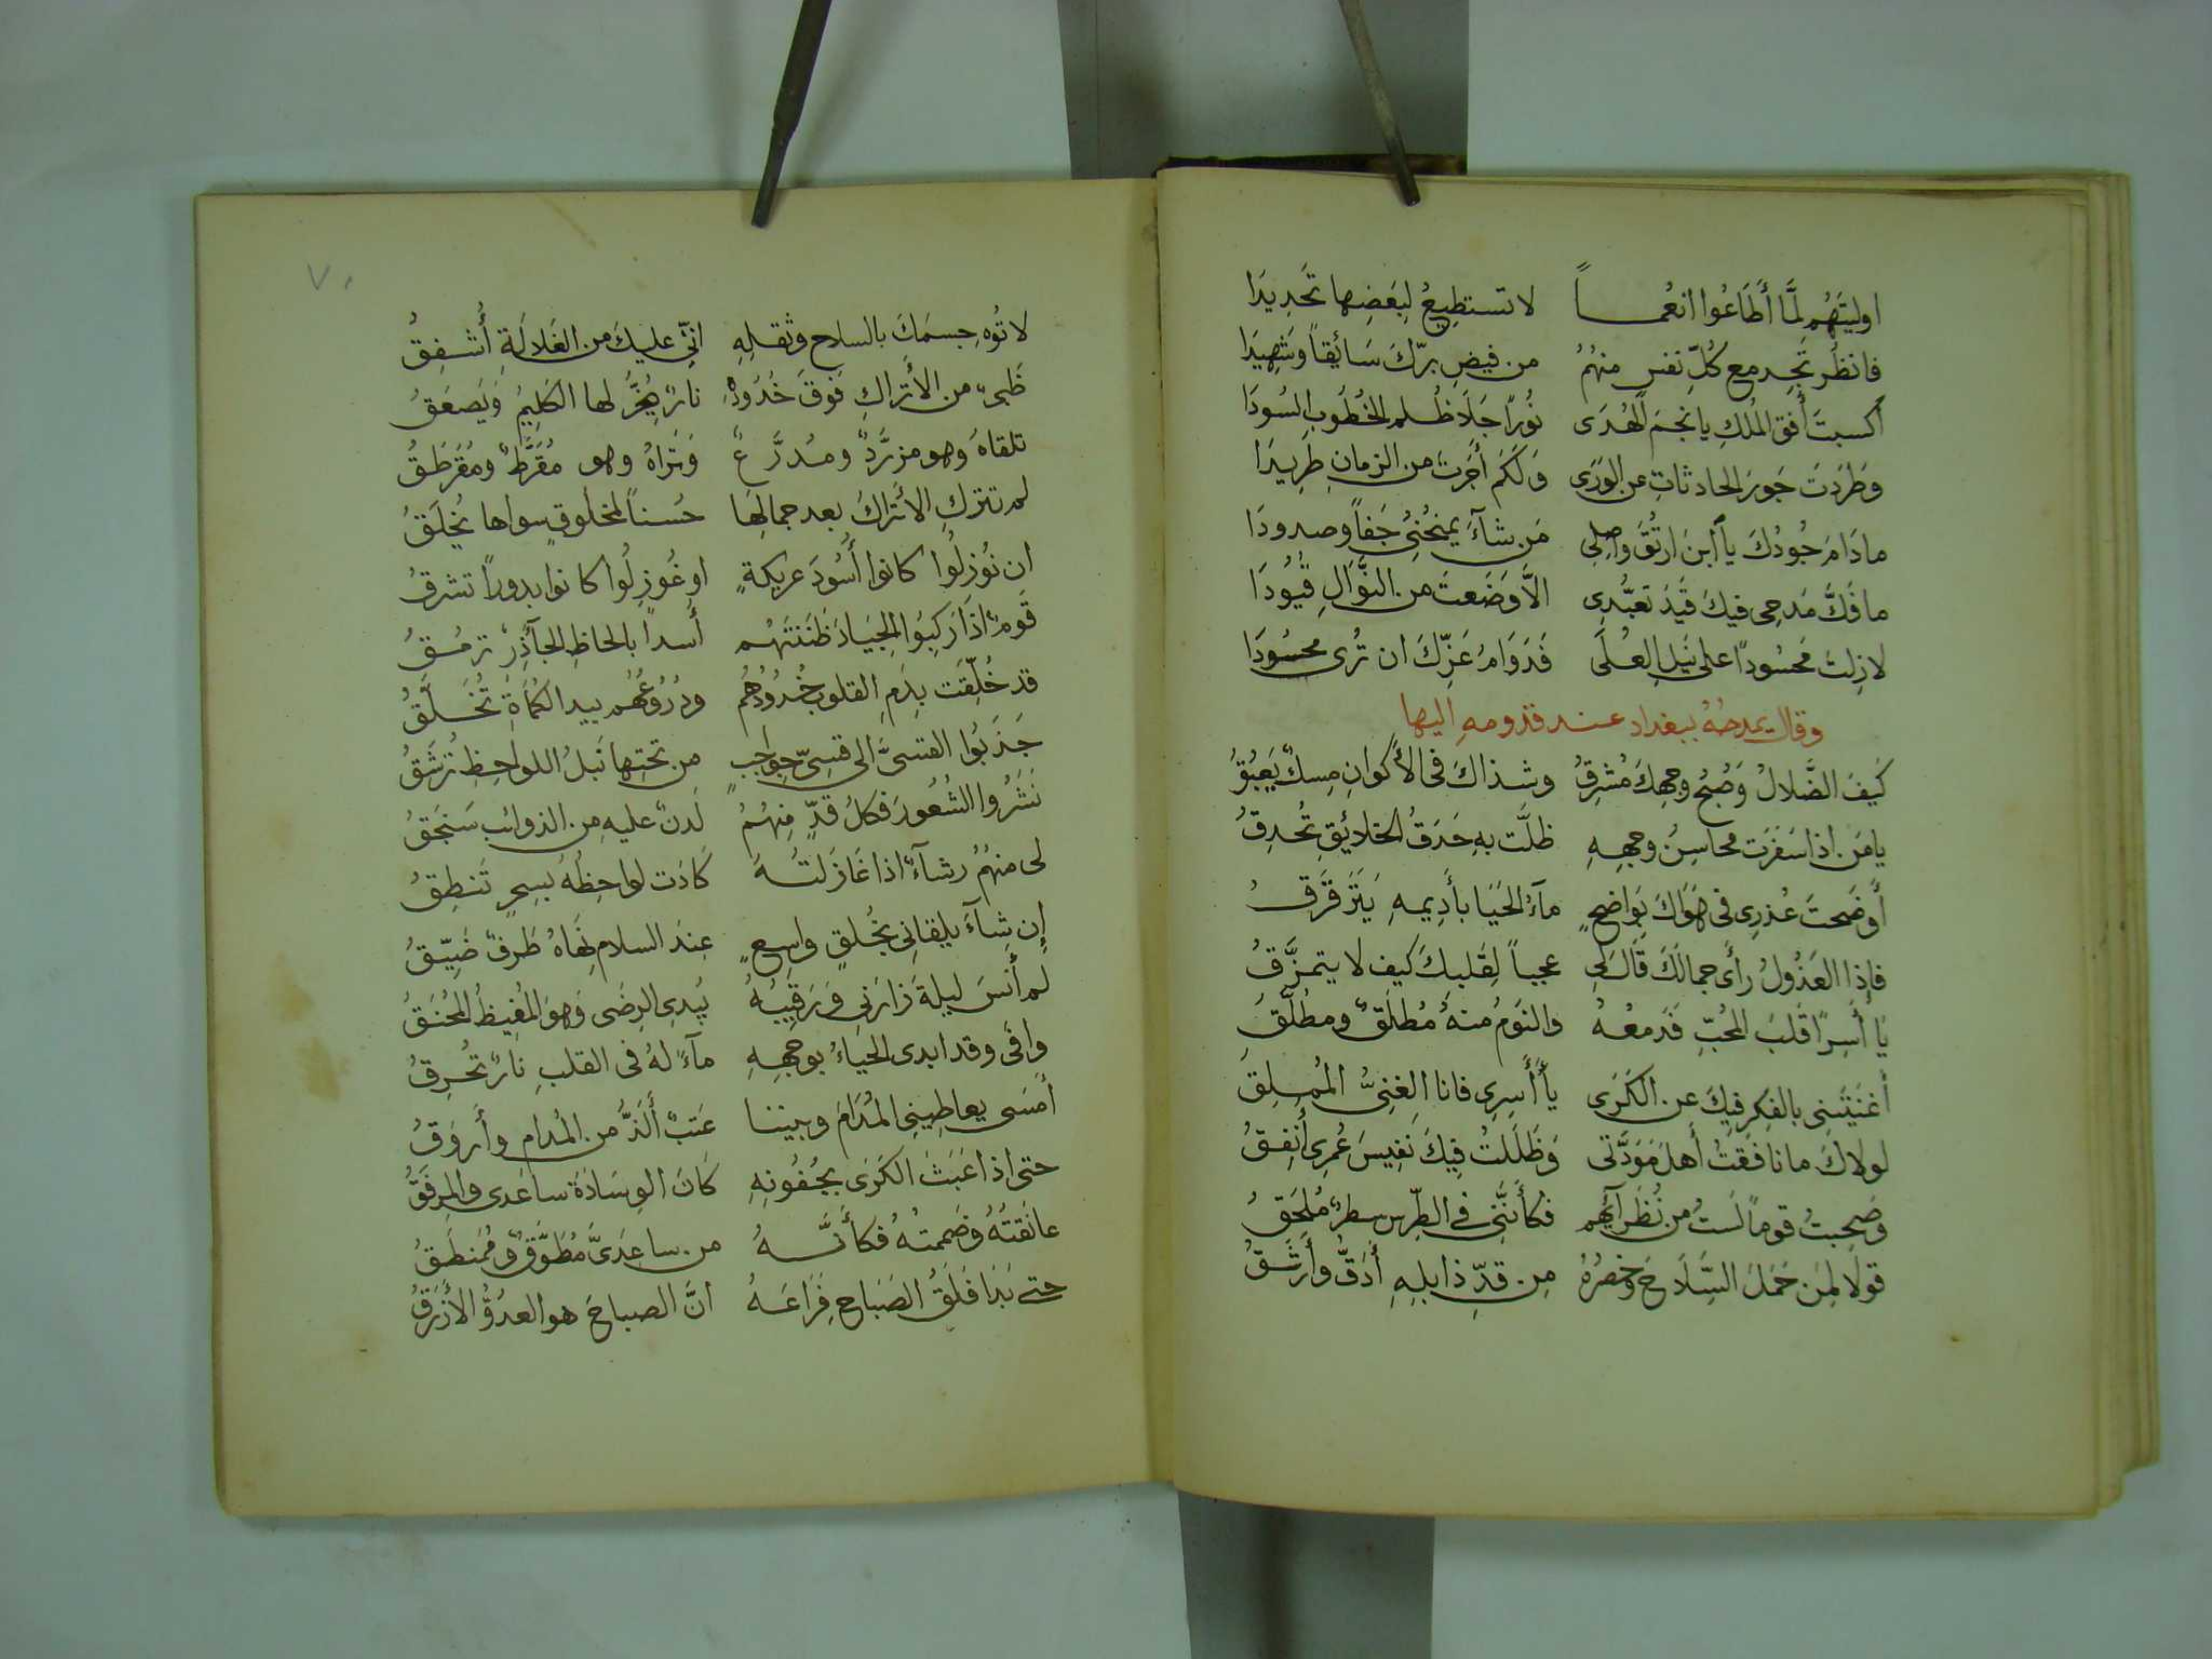 اوليتَهُم لمَّا أَطَاعُوا انعُمــاً لا تستطِيعُ لِبَعضِها تَحَدِيدَا
فانظُر تَجِد مع كُلِّ نفسٍ منهُمُ من فيضِ برّكَ سَائقاً وشَهِيدَا
أكسبتَ أُفقَ المُلكِ يا نجمَ الهُدَى نُوراً جَلَا ظُلم الخُطُوبِ السُودَا
وَطَرَدتَ جَورَ الحادثاتِ عن الوَرَى وَلَكَم أَجَرتَ من الزمانِ طَرِيدَا
مادَامَ جُودُكَ يا ابنَ ارتُقَ واصِلِى مَن شآءَ يمنحُنِى جَفاً وصدودَا
ما فَكَّ مَدحِى فيكَ قَيدَ تعبُّدِى الَّا وَضَعتَ من النَّوَالِ قُيُودَا
لا زِلتَ مَحسُوداً على نَيلِ العُلَى فَدَوَامُ عَزِّكَ ان تُرى محسُودَا
وقال يمدحُهُ ببغداد عند قدومهِ اليها
كَيفَ الضَّلالُ وَصُبحُ وجهِكَ مُشرِقُ وشذاكَ فى الأَكوانِ مِسكٌ يَعبُقُ
يا مَن اذا سَفَرَت محاسِنُ وجههِ ظلَّت بهِ حَدَقُ الخلائِقِ تُحدِقُ
أَوضَحتَ عُذرِى فى هَوَاكَ بِوَاضحٍ مآءُ الحَيَا بأَدِيمهِ يَتَرَقرَقُ
فإذا العَذُولُ رأَى جمالَكَ قَالَ لِى عجباً لِقَلبِكَ كيف لا يتمزَّقُ
يَا أَسِراً قَلبَ المُحبِّ فَدَمعُهُ والنَومُ منهُ مُطلَقٌ ومطَلَّقُ
أَغنَيتَنِى بالفِكرِ فيكَ عن الكَرَى يا أَسِرِى فانا الغِنِىُّ المُملِقُ
لولاكَ ما نافَقتُ أَهلَ مَوَدَّتى وَظَلَلتُ فِيكَ نفِيسَ عُمرِى أُنفِقُ
وصَحِبتُ قوماً لَستُ من نُظَرآئِهم فكأَننَّى فى الطِّرسِ سطرٌ مُلحَقُ
قولا لِمَن حَمَلَ السِّلَاحَ وخصرُهُ مِن قدِّ ذابلِهِ أَدَقُّ وأَرشَقُ
٧٠
لا تُوهِ جسمَكَ بالسلاح وثقلِهِ انّى عليكَ من الغَلالَةِ أُشفِقُ
ظَبىٌ من الأَتراكِ فَوقَ خُدُودِهِ نارٌ يَخِرُّ لها الكَلِيمُ وَيَصعَقُ
تلقاهُ وهو مزرَّدٌ ومدرَّعٌ وَتَراهُ وهو مُقَرَّطٌ ومُقَرطَقُ
لم تتركِ الاتراكُ بعد جمالِهَا حُسناً لمخلُوقٍ سواها يُخلَقُ
ان نُوزِلُوا كانوا أُسُودَ عريكةٍ او غُوزِلُوا كانوا بدوراً تشرقُ
قَومٌ اذَا رَكِبُوا الجِيَادَ ظَنَنتَهُم أُسداً بالحاظِ الجآذِرِ ترمُقُ
قد خُلِّقَت بِدَمِ القلوبِ خُدُودُهُم ودُرُوعُهُم بيد الكُمَاةِ تُخَلَّقُ
جَذَبُوا القسىَّ الى قسىِّ حواجبٍ من تحتِها نَبلُ اللواحِظِ تُرشَقُ
نَشَرُوا الشُعُورَ فكلُ قدٍّ مِنهُمُ لَدنٌ عليهِ من الذوائبِ سَنجَقُ
لى منهُمُ رشآءٌ اذا غَازَلتُهُ كَادَت لواحِظُهُ بسِحرٍ تَنطِقُ
إِن شآءَ يلقانِى بخُلقٍ واسِعٍ عِندَ السلام نَهَاهُ طَرفٌ ضَيّقُ
لم أَنسَ ليلةَ زَارَنِى وَرَقِيبُهُ يُبدِى الرِضَى وَهوَ المُغِيظُ المُحنَقُ
وافى وقد ابدى الحَيَاءُ بوجههِ مآءً لهُ فى القلبِ نارٌ تُحرِقُ
أَمسَى يعاطِينِى المُدَامَ وبيننا عَتبٌ أَلَذُّ من المُدامِ وأَروَقُ
حتى اذا عَبَثَ الكَرَى بجُفُونهِ كَانَ الوِسَادَةَ ساعَدى والمِرفَقُ
عانَقتُهُ وضَممتُهُ فكأَنَّهُ من ساعِدَىَّ مُطَوَّقٌ ومُمَنطَقُ
حتى بَدَا فَلَقُ الصَبَاحِ فَرَاعَهُ انَّ الصباحَ هو العدُوُّ الأَزرَقُ